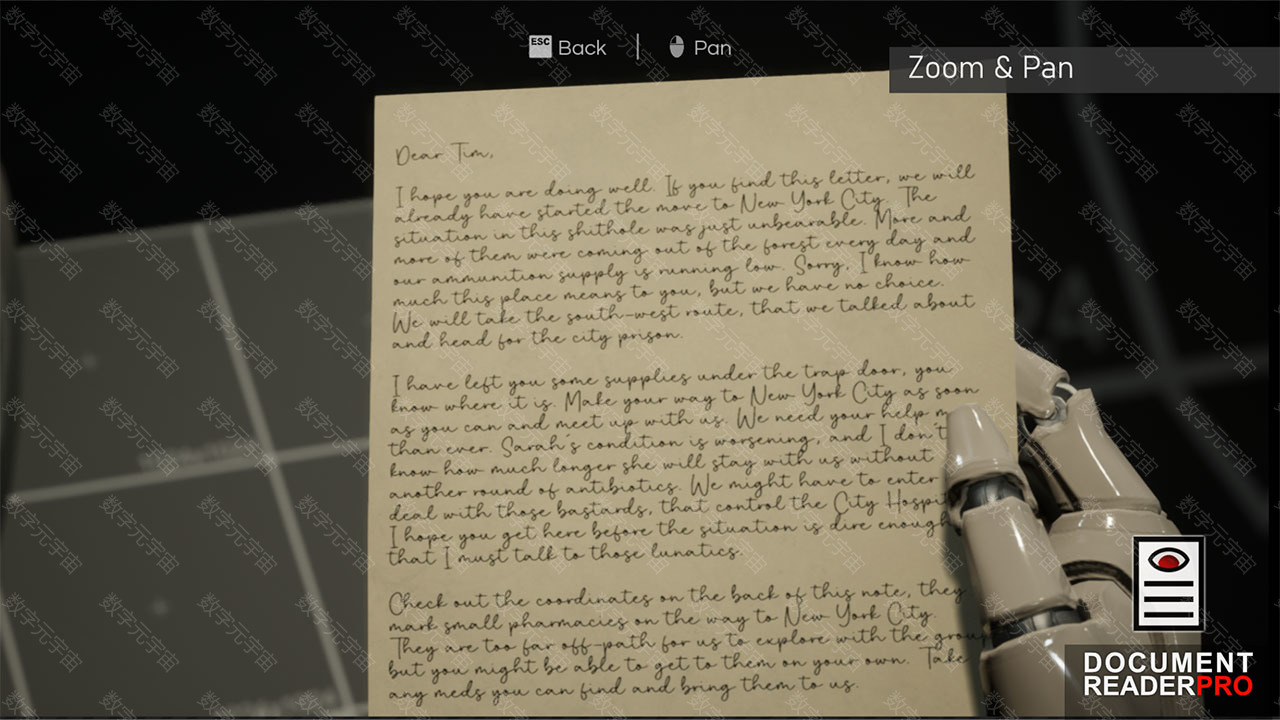 ESC Back | Pan
Zoom & Pan
Dear Tim,
I hope you are doing well. If you find this letter, we will
already have started the move to New York City. The
situation in this shithole was just unbearable. More and
more of them were coming out of the forest every day and
our ammunition supply is running low. Sorry, I know how
much this place means to you, but we have no choice.
We will take the south-west route, that we talked about
and head for the city prison.
I have left you some supplies under the trap door, you
know where it is. Make your way to New York City as soon
as you can and meet up with us. We need your help
than ever. Sarah's condition is worsening, and I don't
know how much longer she will stay with us without
another round of antibiotics. We might have to enter
deal with those bastards, that control the City
I hope you get here before the situation is dire enough
that I must talk to those lunatics.
Check out the coordinates on the back of this note, they
mark small pharmacies on the way to New York City.
They are too far off-path for us to explore with the group
but you might be able to get to them on your own. Take
any meds you can find and bring them to us.
DOCUMENT
READERPRO
数字元宇宙